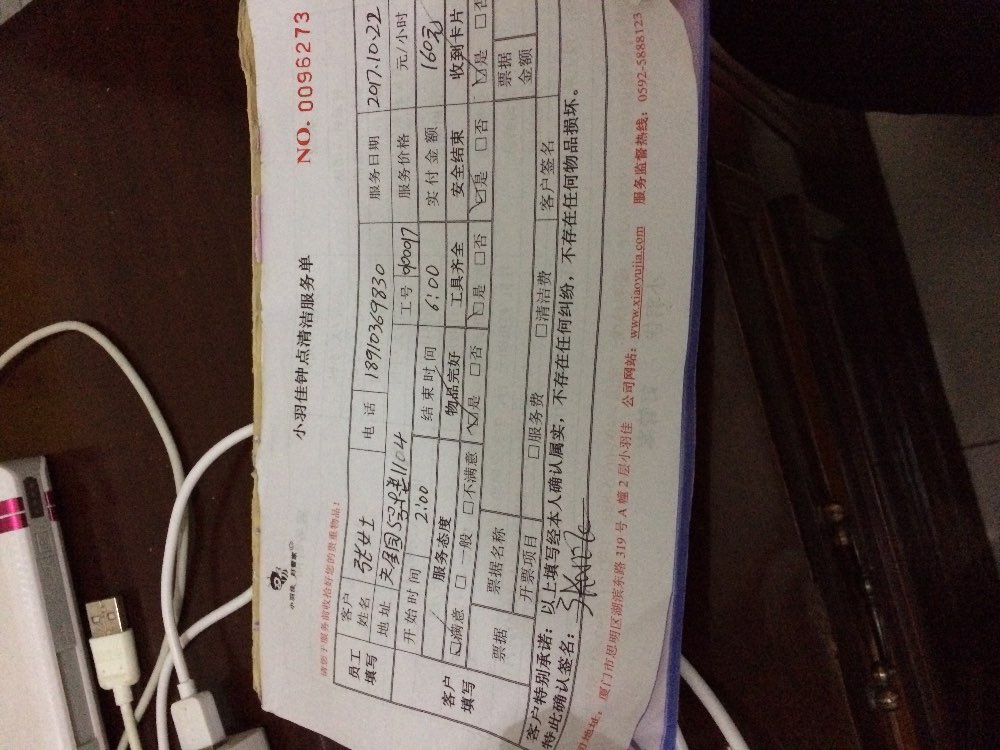 小羽佳 好管家
小羽佳钟点清洁服务单
NO. 0096273
请您于服务前收拾好您的贵重物品：
员工填写
客户姓名 张女士 电话 18910369830 服务日期 2017.10.22
地址 1104 工号 服务价格 元/小时
开始时间 2:00 结束时间 6:00 实付金额 160元
客户填写
服务态度 物品完好 工具齐全 安全结束 收到卡片
☑满意 □一般 □不满意 ☑是 □否 □是 □否 ☑是 □否 ☑是 □否
票据 票据名称 票据金额
开票项目 □服务费 □清洁费 客户签名
客户特别承诺：以上填写经本人确认属实，不存在任何纠纷，不存在任何物品损坏。
特此确认签名：
地址：厦门市思明区湖滨东路 319 号 A 幢 2 层小羽佳 公司网站：www.xiaoyujia.com 服务监督热线：0592-5888123